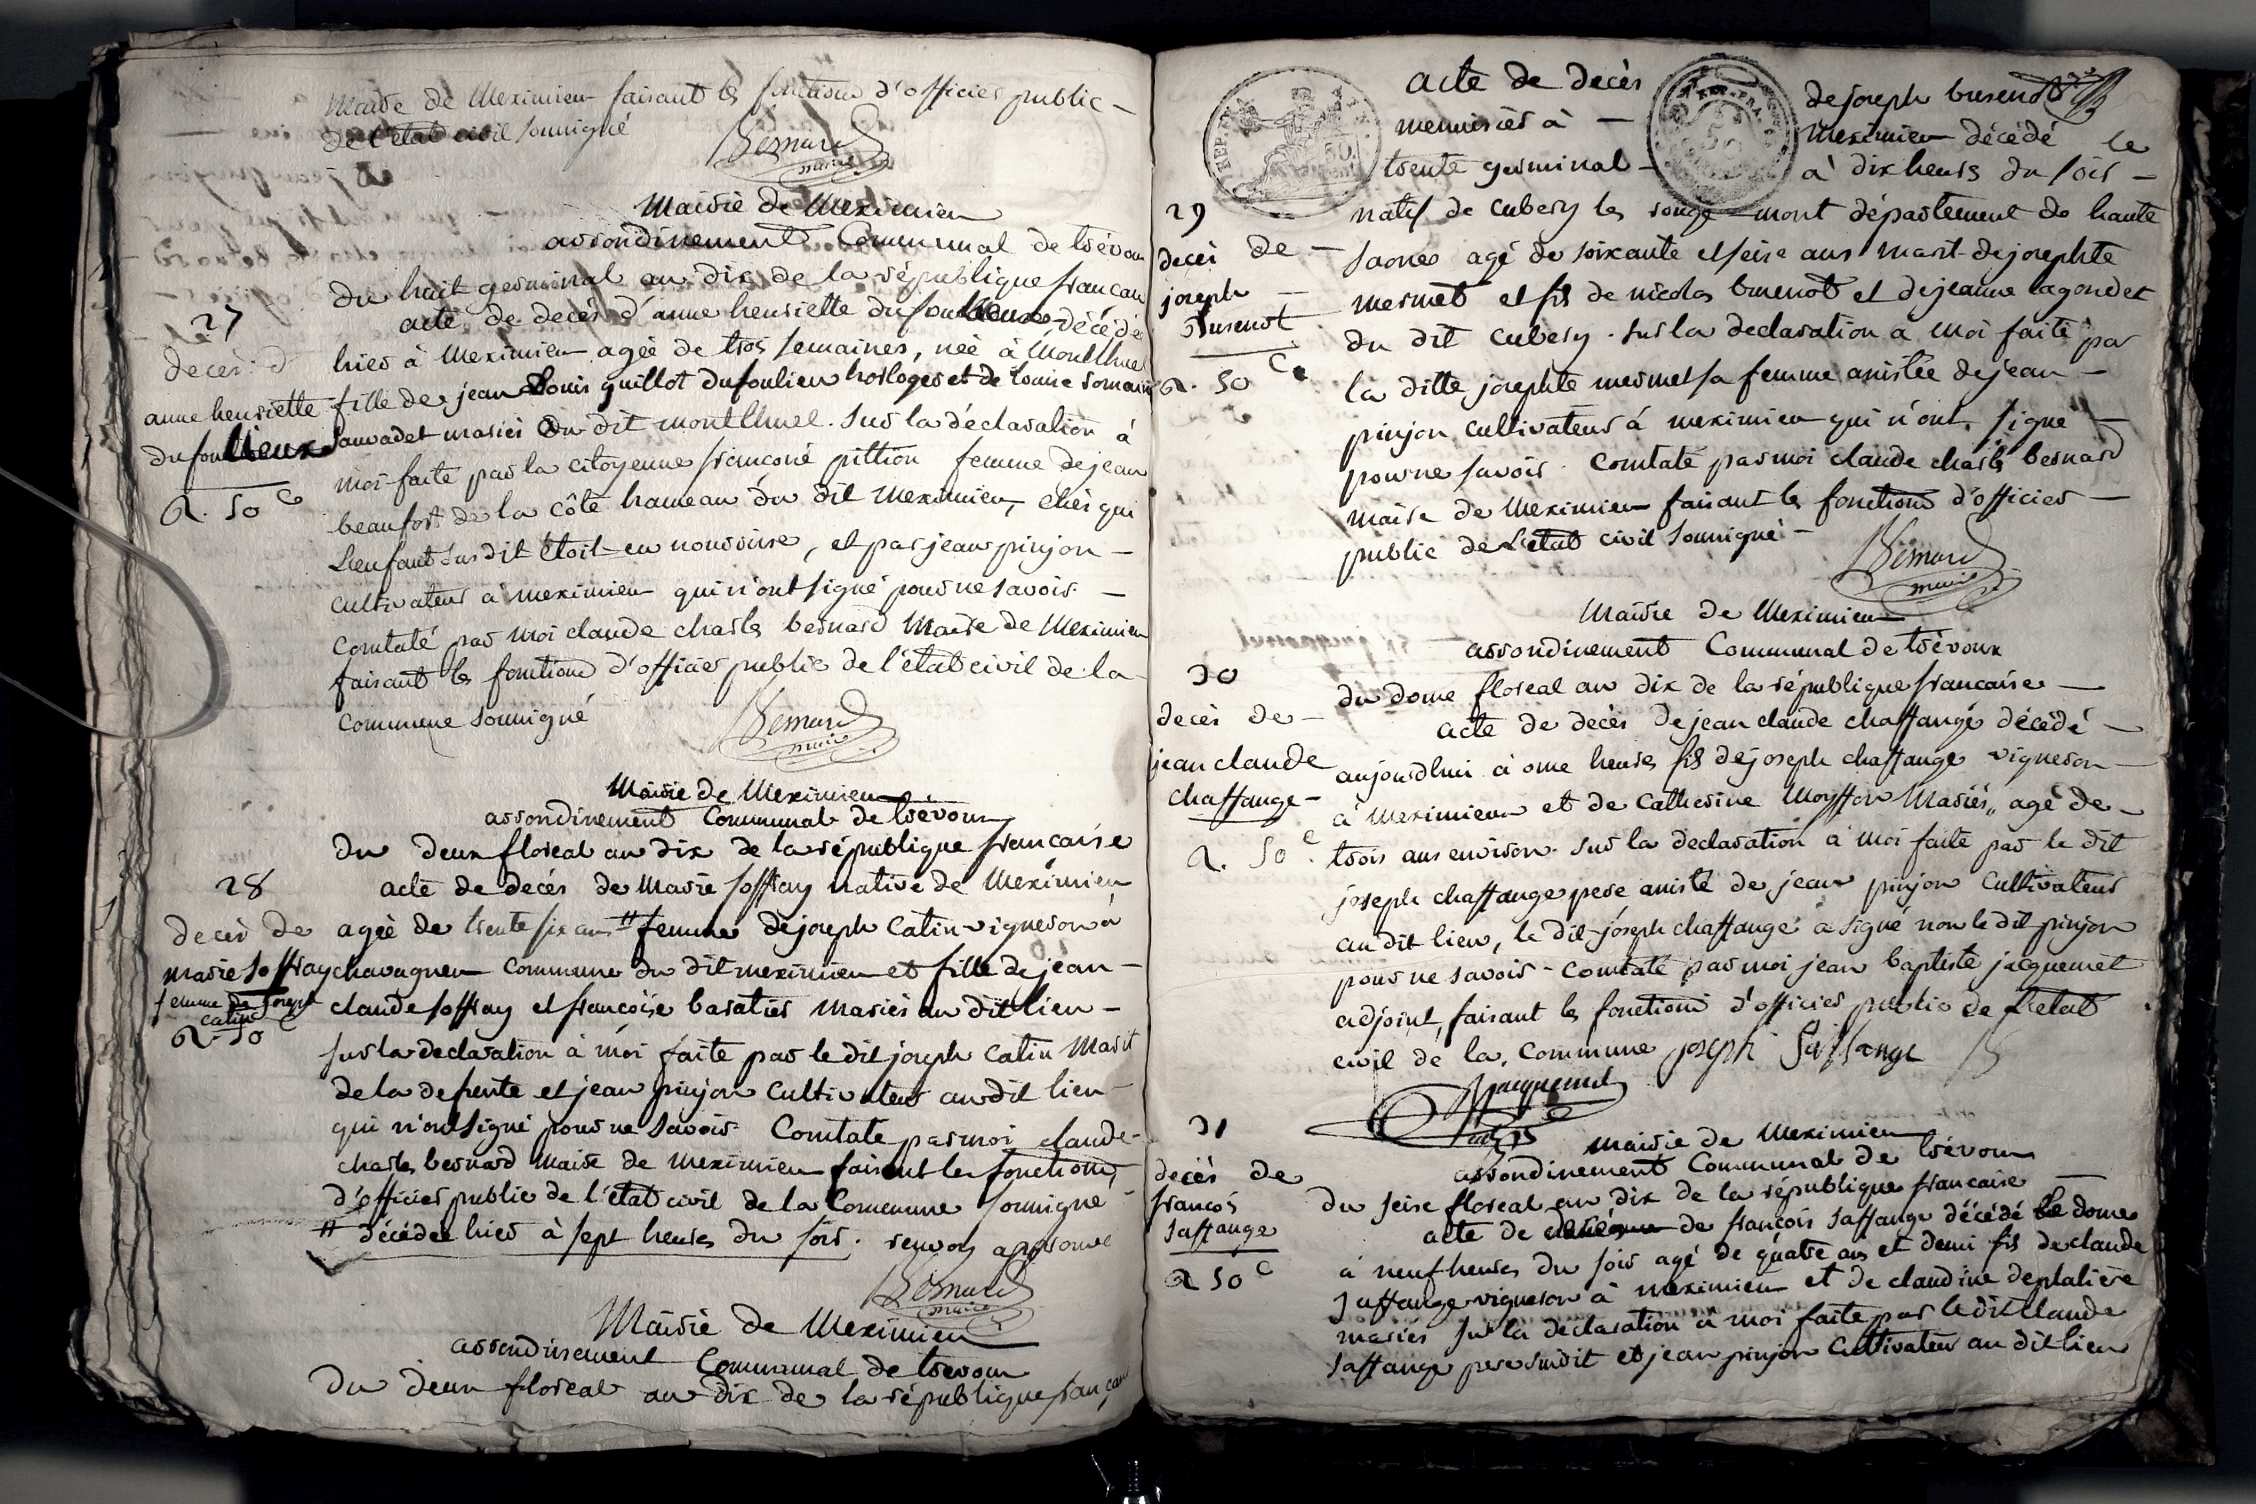 Maire de Meximieu faisant les fonctions d'officier public
de l'état civil soussigné
Bernard
maire
Mairie de Meximieu
arrondissement Communal de trévoux
du huit germinal an dix de la république francaise
27
acte de decés d'anne henriette dufoulieux décédé
decés d
hier à Meximieu agée de trois semaines, née à Montlluel
anne henriette
fille de jean Louis guillot dufoulieu horloger et de Louise romain
dufoulieux
sauvadet mariés du dit montlluel. sur la déclaration à
moi faite par la citoyenne francoise pittion femme de jean
a. 50 c
beaufort de la côte hameau du dit Meximieu, chés qui
L'enfant susdit étoit en nourrisse, et par jean pinjon
cultivateur à meximieu qui n'ont signé pour ne savoir.
Constaté par moi claude charles bernard Maire de Meximieu
faisant les fonctions d'officier public de l'état civil de la
commune soussigné
Bernard
maire
Mairie de Meximieu
arrondissement Communal de trévoux
du deux floreal an dix de la république francaise
28
acte de decés de Marie soffray native de Meximieu
decés de
agée de trente six ans # femme de joseph Catin vigneron à
marie soffray
chavagneu commune du dit meximieu et fille de jean
femme de joseph
catin
claude soffray et francoise baratier mariés au dit lieu
a. 50 c
sur la declaration à moi faite par le dit joseph Catin Marit
de la defunte et jean pinjon cultivateur au dit lieu
qui n'ont signé pour ne savoir. Constaté par moi claude
charles bernard Maire de Meximieu faisant les fonctions
d'officier public de l'état civil de la Commune soussigné
# décédée hier à sept heures du soir. renvoy approuvé
Bernard
maire
Mairie de Meximieu
arrondissement Communal de trevoux
du deux floreal an dix de la république francaise
acte de decès de joseph busenot
REP. FRA.
menuisier à Meximieu décédé le
trente germinal à dix heures du soir
29
natif de cubery les rouge mont département de haute
decés de
saones agé de soixante et seise ans marit de josephte
joseph
busenot
mermet et fils de nicolas busenot et de jeanne lagoudet
du dit cubery. sur la declaration a moi faite par
a. 50 c
la ditte josephte mermet sa femme assistée de jean
pinjon cultivateur à meximieu qui n'ont signé
pour ne savoir. Constaté par moi claude charles bernard
maire de Meximieu faisant les fonctions d'officier
public de l'état civil soussigné
Bernard
maire
Mairie de Meximieu
arrondissement Communal de trévoux
30
du dome floreal an dix de la république francaise
decès de
acte de decès de jean claude chaffange décédé
jean claude
aujourdhui à onse heures fils de joseph chaffange vigneron
chaffange
à Meximieu et de Catherine Moyffon Mariés, agé de
a. 50 c
trois ans environ. sur la declaration à moi faite par le dit
joseph chaffange pere assisté de jean pinjon cultivateur
au dit lieu, le dit joseph chaffange a signé non le dit pinjon
pour ne savoir. Constaté par moi jean baptiste jacquemet
adjoint, faisant les fonctions d'officier public de l'etat
civil de la commune joseph Saffange
Jacquemet
adjt
31
Mairie de Meximieu
arrondissement Communal de trévoux
decès de
du seise floreal an dix de la république francaise
francois
acte de decés de francois saffange décédé le dome
saffange
à neuf heures du soir agé de quatre ans et demi fils de claude
a 50 c
saffange vigneron à meximieu et de claudine deplatière
mariés sur la déclaration à moi faite par le dit Claude
saffange pere susdit et jean pinjon cultivateur au dit lieu